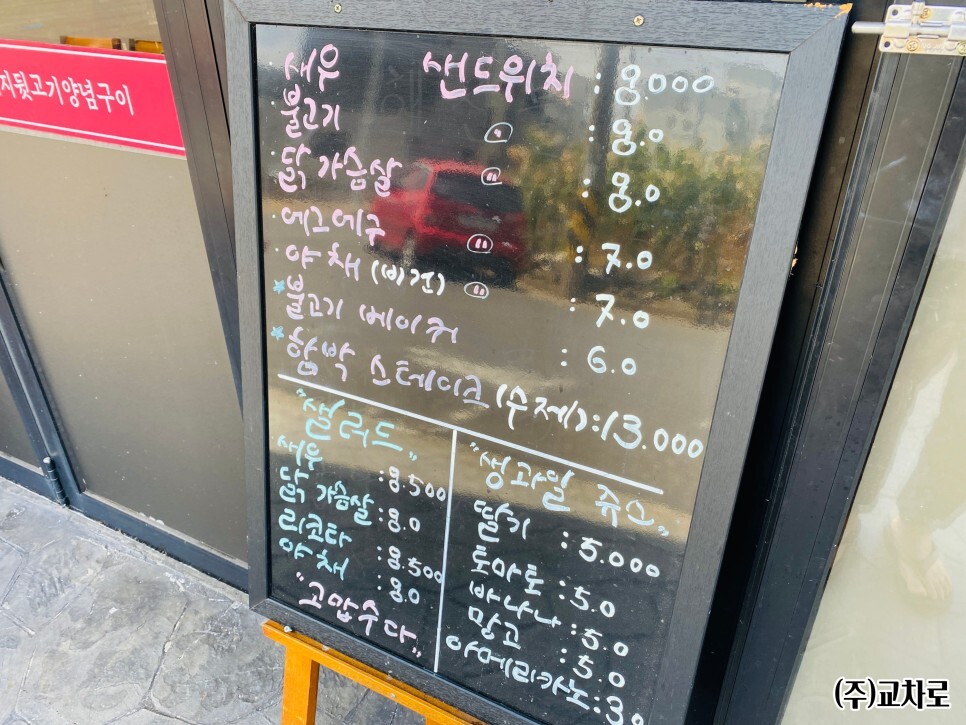 지뒷고기양념구이
새우 샌드위치 : 8.000
불고기 〃 : 8.0
닭가슴살 〃 : 8.0
에그에구 〃 : 7.0
야채 (비건) 〃 : 7.0
불고기 베이커 : 6.0
함박 스테이크 (수제) : 13.000
"샐러드"
새우 : 8.500
닭가슴살 : 8.0
리코타 : 8.500
야채 : 8.0
"고맙수다"
"생과일 쥬스"
딸기 : 5.000
토마토 : 5.0
바나나 : 5.0
망고 : 5.0
아메리카노 : 3.0
(주)교차로